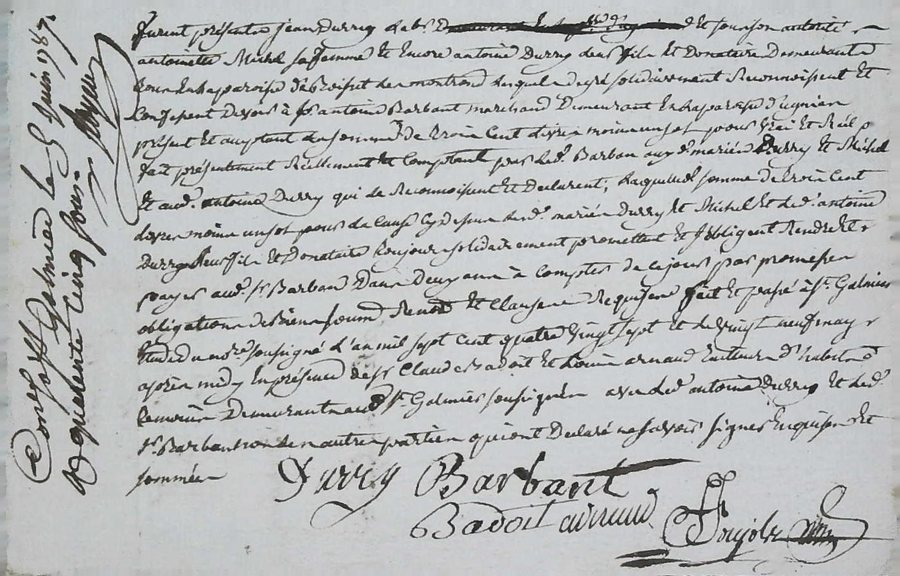 furent présents jean Durry lab.r et sous son autorité
antoinette Michel sa femme et Encore antoine Durry leur fils Et Donataire Demeurants
tous En la paroisse de montrond lesquels de gré solidairement Reconnoissent Et
Confessent devoir à s.r antoine Barbant marchand Demeurant En la paroisse
présent Et acceptant la somme de trois Cent livres moins un sol pour vrai Et Réel
fait présentement Réellement Et Comptant par led. Barban auxd. mariés Durry Et Michel
Et aud. antoine Durry qui le Reconnoissent Et Declarent, laquelle somme de trois Cent
livres moins un sol pour la Cause Cy Dessus lesd. mariés Durry Et Michel Et led. antoine
Durry leur fils Et Donataire Conjour solidairement promettent Et s'obligent Rendre Et
payer aud. s.r Barban Dans Deux ans à Compter de ce jour par promesse
obligation de Biens soum. Renon. Et Clauses Requises fait Et passé à s.t Galmier
Etude du no.re soussigné l'an mil sept Cent quatre vingt sept Et le vingt neuf may
après midy En présence de s.r Claude Badoit Et Louis arnaud
témoins Demeurants aud. s.t Galmier soussignés avec led. antoine Durry Et led.
s.r Barban non les autres parties qui ont Déclaré ne savoir signer Enquises Et
sommées
Durry Barbant
Badoit arnaud
Con.lé à s.t Galmier le 5 juin 1787
quarente Cinq sous